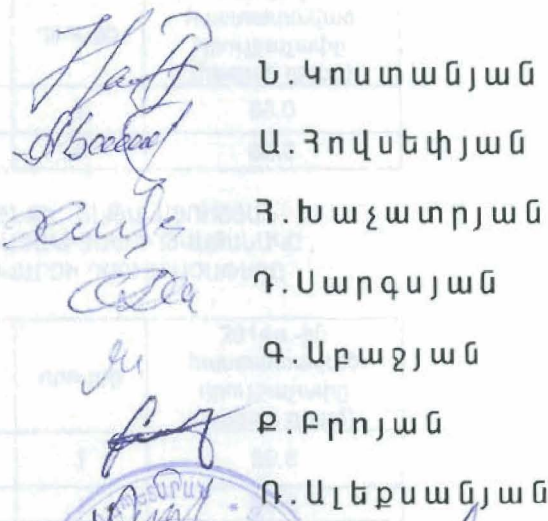 Ն.Կոստանյան
Ա.Հովսեփյան
Հ.Խաչատրյան
Դ.Սարգսյան
Գ.Աբաջյան
Ք.Բրոյան
Ռ.Ալեքսանյան